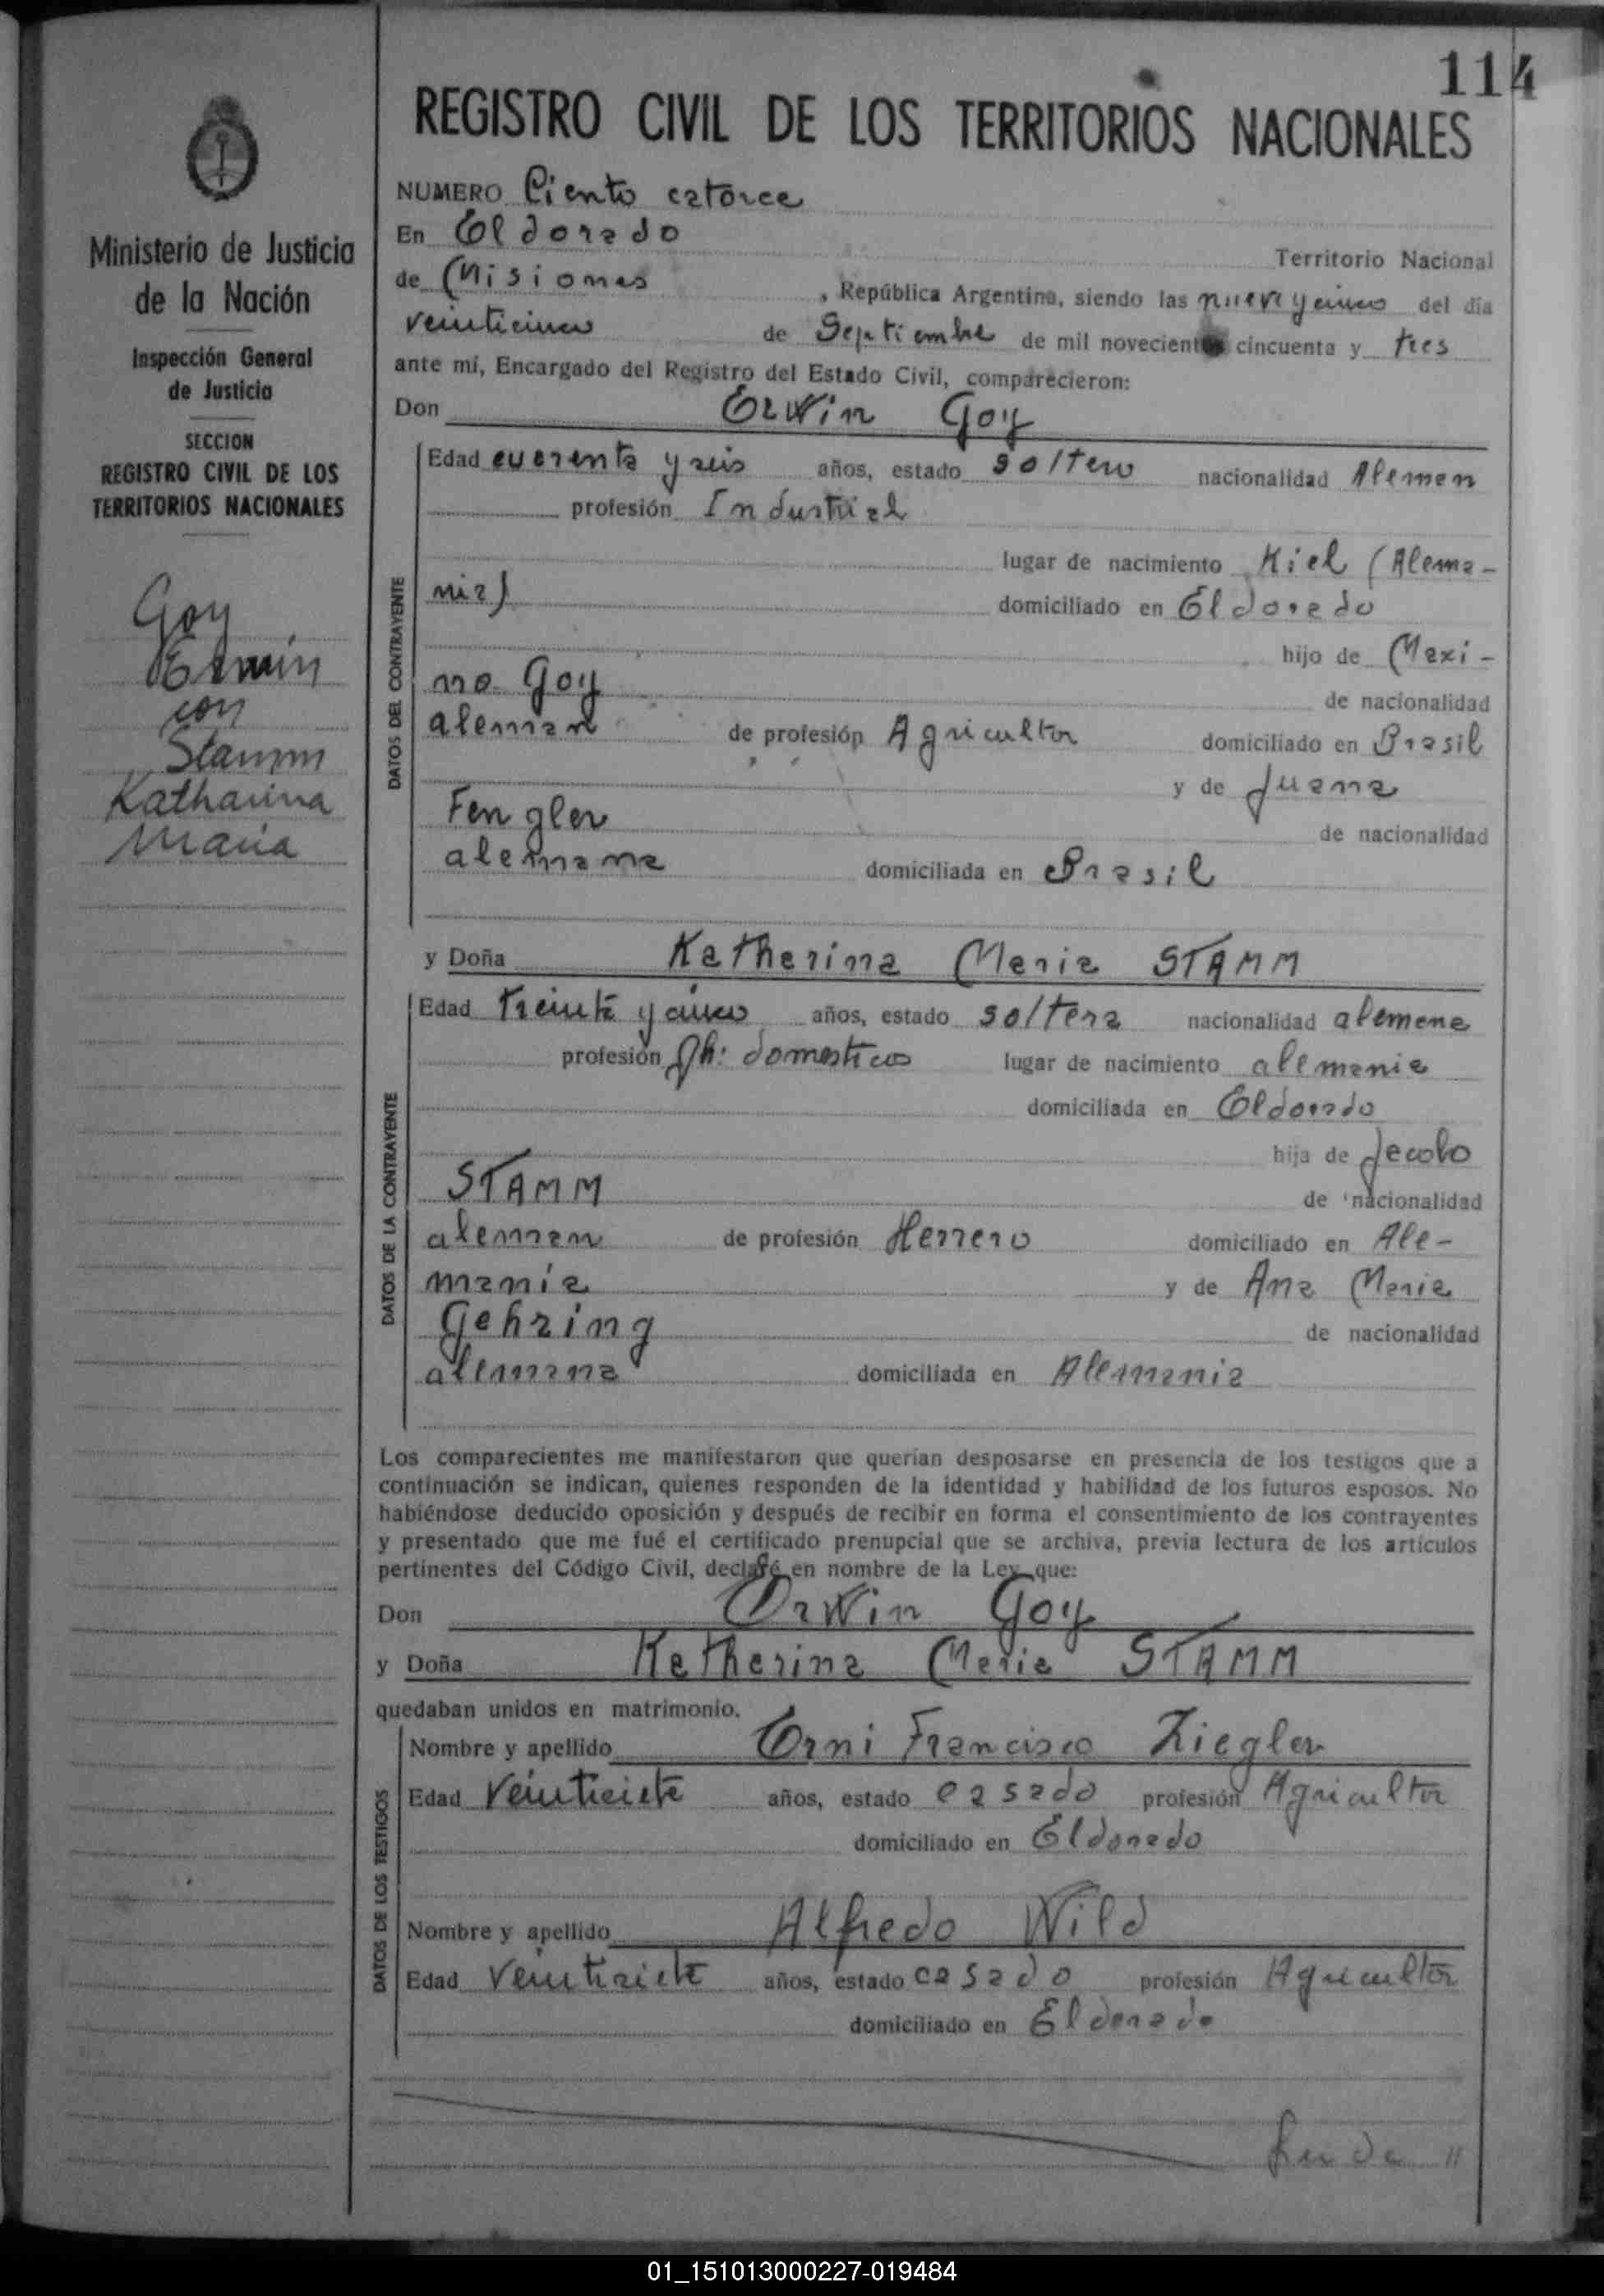 114
REGISTRO CIVIL DE LOS TERRITORIOS NACIONALES
Ministerio de Justicia
de la Nación
Inspección General
de Justicia
SECCION
REGISTRO CIVIL DE LOS
TERRITORIOS NACIONALES
Goy
Erwin
con
Stamm
Katharina
Maria
NUMERO Ciento catorce
En Eldorado
Territorio Nacional
de Misiones , República Argentina, siendo las nueve y cinco del día
veinticinco de Septiembre de mil novecientos cincuenta y tres
ante mí, Encargado del Registro del Estado Civil, comparecieron:
Don Erwin Goy
DATOS DEL CONTRAYENTE
Edad cuarenta y seis años, estado soltero nacionalidad Aleman
profesión Industrial
lugar de nacimiento Kiel (Alema-
nia) domiciliado en Eldorado
hijo de Maxi-
mo Goy de nacionalidad
aleman de profesión Agricultor domiciliado en Brasil
y de Juana
Fengler de nacionalidad
alemana domiciliada en Brasil
y Doña Katharina Maria STAMM
DATOS DE LA CONTRAYENTE
Edad treinta y cinco años, estado soltera nacionalidad alemana
profesión Qh: domesticos lugar de nacimiento alemania
domiciliada en Eldorado
hija de Jacobo
STAMM de nacionalidad
aleman de profesión Herrero domiciliado en Ale-
mania y de Ana Maria
Gehring de nacionalidad
alemana domiciliada en Alemania
Los comparecientes me manifestaron que querían desposarse en presencia de los testigos que a
continuación se indican, quienes responden de la identidad y habilidad de los futuros esposos. No
habiéndose deducido oposición y después de recibir en forma el consentimiento de los contrayentes
y presentado que me fué el certificado prenupcial que se archiva, previa lectura de los artículos
pertinentes del Código Civil, declaré en nombre de la Ley que:
Don Erwin Goy
y Doña Katharina Maria STAMM
quedaban unidos en matrimonio.
DATOS DE LOS TESTIGOS
Nombre y apellido Erni Francisco Ziegler
Edad Veintisiete años, estado casado profesión Agricultor
domiciliado en Eldorado
Nombre y apellido Alfredo Wild
Edad Veintisiete años, estado casado profesión Agricultor
domiciliado en Eldorado
01_151013000227-019484